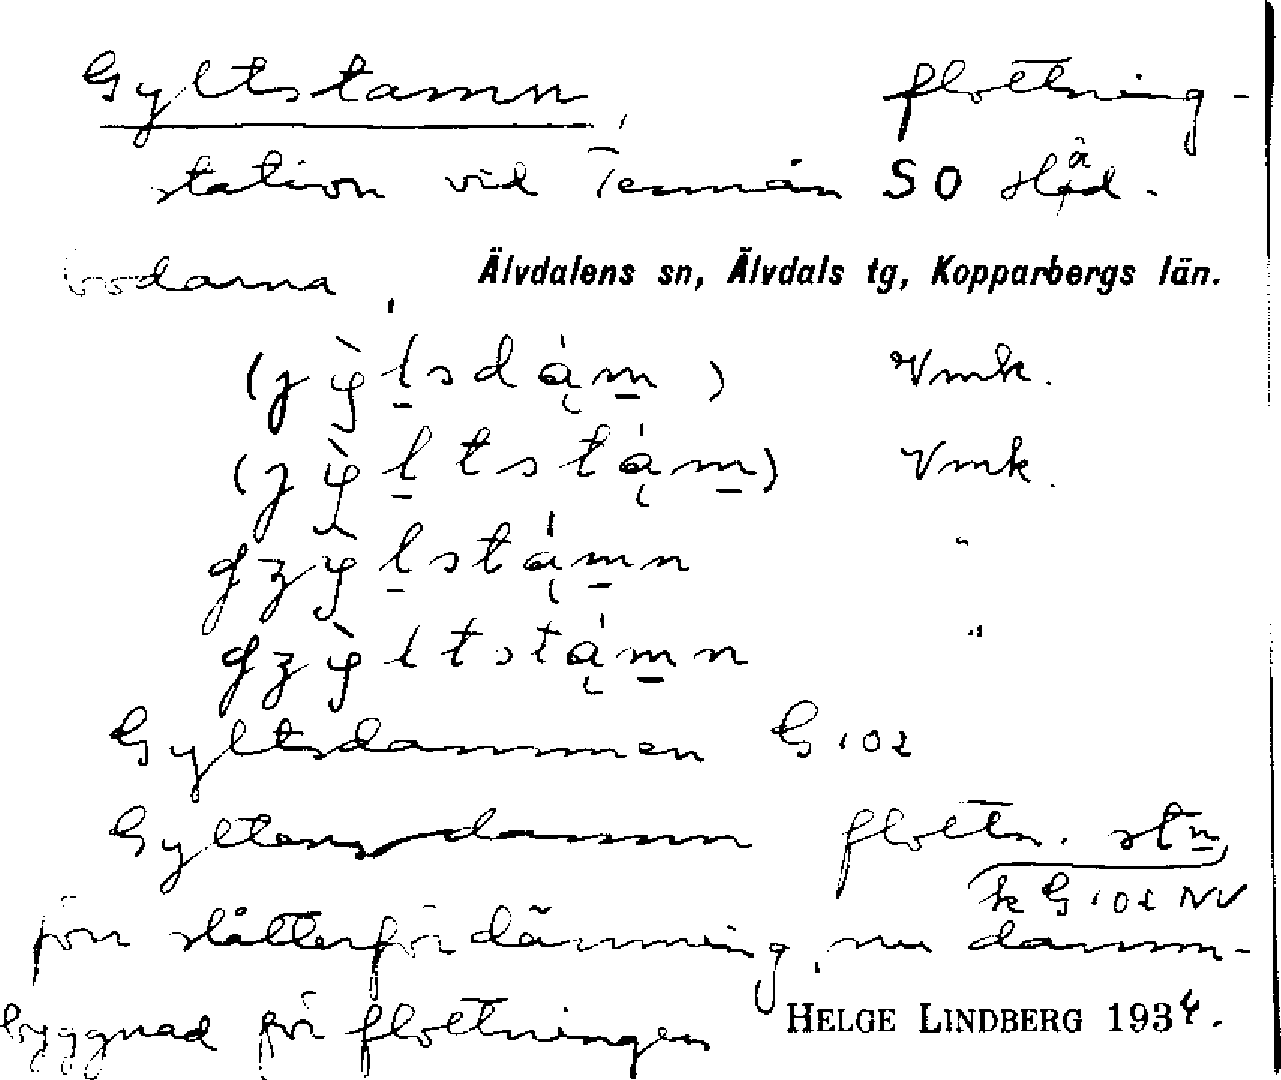 Gyltstamn, flottning-
station vid Tennån SO Slåd-
bodarna, Älvdalens sn, Älvdals tg, Kopparbergs län.
Vmk.
Vmk.
"
"
Gyltsdammen G 102
Gyltensdamm flottn. stn
k G 102 NV
förr slåtterfördämning, nu damm-
byggnad för flottningen HELGE LINDBERG 1934.